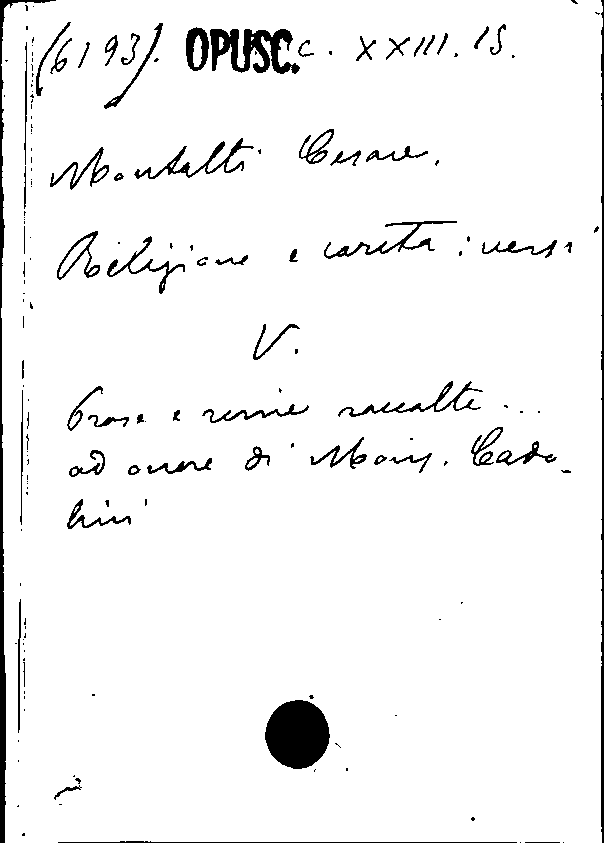 (6193). OPUSC. c. XXIII. 15.
Montalti Cesare.
Religione e carità : versi
V.
Prose e rime raccolte...
ad onore di Mons. Cado-
lini